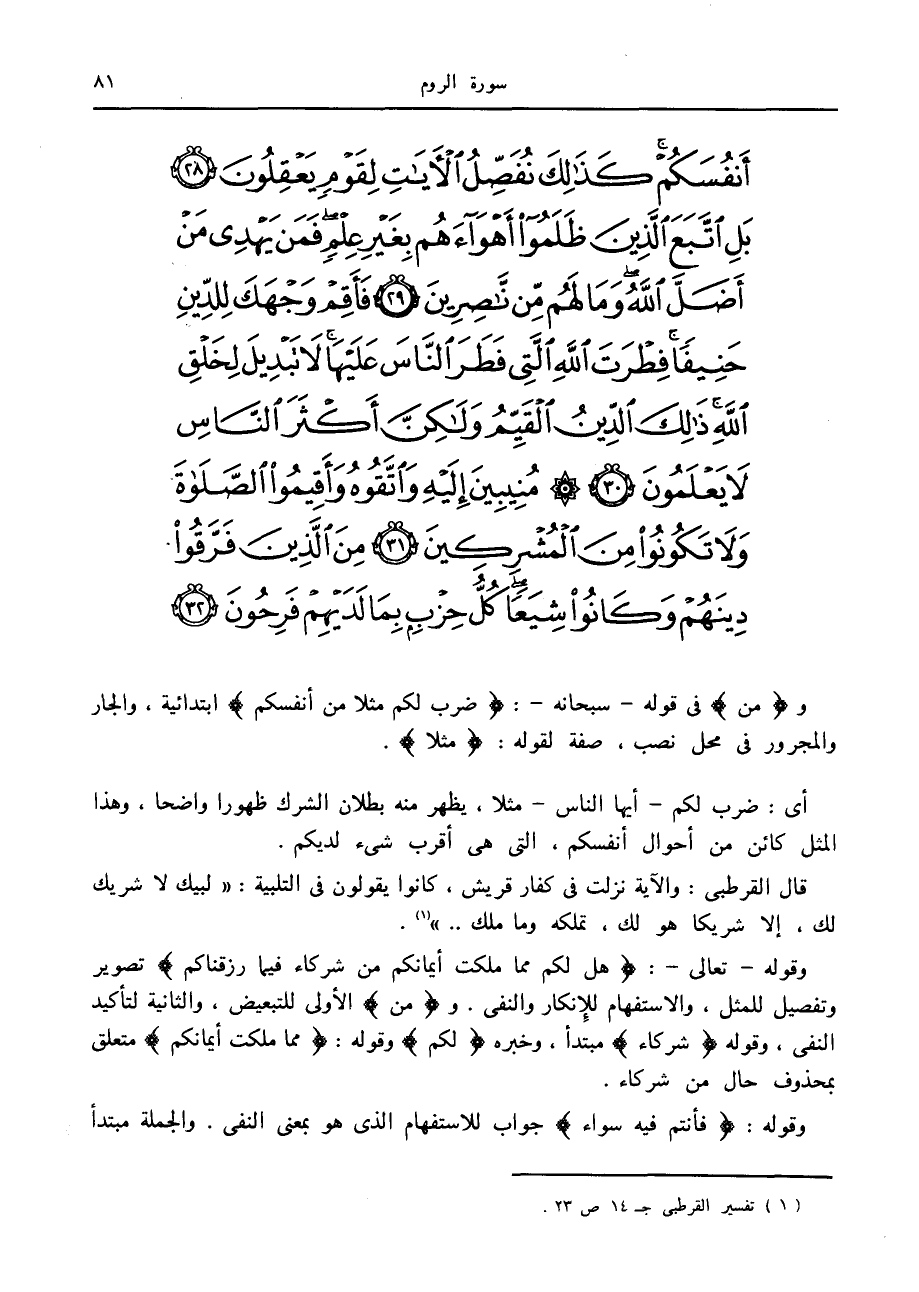 سورة الروم ٨١
أَنفُسَكُمْ ۚ كَذَٰلِكَ نُفَصِّلُ ٱلْأَيَٰتِ لِقَوْمٍ يَعْقِلُونَ ٢٨
بَلِ ٱتَّبَعَ ٱلَّذِينَ ظَلَمُوٓا۟ أَهْوَآءَهُم بِغَيْرِ عِلْمٍ ۖ فَمَن يَهْدِى مَنْ
أَضَلَّ ٱللَّهُ ۖ وَمَا لَهُم مِّن نَّٰصِرِينَ ٢٩ فَأَقِمْ وَجْهَكَ لِلدِّينِ
حَنِيفًا ۚ فِطْرَتَ ٱللَّهِ ٱلَّتِى فَطَرَ ٱلنَّاسَ عَلَيْهَا ۚ لَا تَبْدِيلَ لِخَلْقِ
ٱللَّهِ ۚ ذَٰلِكَ ٱلدِّينُ ٱلْقَيِّمُ وَلَٰكِنَّ أَكْثَرَ ٱلنَّاسِ
لَا يَعْلَمُونَ ٣٠ ۞ مُنِيبِينَ إِلَيْهِ وَٱتَّقُوهُ وَأَقِيمُوا۟ ٱلصَّلَوٰةَ
وَلَا تَكُونُوا۟ مِنَ ٱلْمُشْرِكِينَ ٣١ مِنَ ٱلَّذِينَ فَرَّقُوا۟
دِينَهُمْ وَكَانُوا۟ شِيَعًا ۖ كُلُّ حِزْبٍۭ بِمَا لَدَيْهِمْ فَرِحُونَ ٣٢
و ﴿ من ﴾ فى قوله – سبحانه – : ﴿ ضرب لكم مثلا من أنفسكم ﴾ ابتدائية ، والجار
والمجرور فى محل نصب ، صفة لقوله : ﴿ مثلا ﴾ .
أى : ضرب لكم – أيها الناس – مثلا ، يظهر منه بطلان الشرك ظهورا واضحا ، وهذا
المثل كائن من أحوال أنفسكم ، التى هى أقرب شىء لديكم .
قال القرطبى : والآية نزلت فى كفار قريش ، كانوا يقولون فى التلبية : « لبيك لا شريك
لك ، إلا شريكا هو لك ، تملكه وما ملك .. »(١) .
وقوله – تعالى – : ﴿ هل لكم مما ملكت أيمانكم من شركاء فيما رزقناكم ﴾ تصوير
وتفصيل للمثل ، والاستفهام للإنكار والنفى . و ﴿ من ﴾ الأولى للتبعيض ، والثانية لتأكيد
النفى ، وقوله ﴿ شركاء ﴾ مبتدأ ، وخبره ﴿ لكم ﴾ وقوله : ﴿ مما ملكت أيمانكم ﴾ متعلق
بمحذوف حال من شركاء .
وقوله : ﴿ فأنتم فيه سواء ﴾ جواب للاستفهام الذى هو بمعنى النفى . والجملة مبتدأ
( ١ ) تفسير القرطبى جـ ١٤ ص ٢٣ .